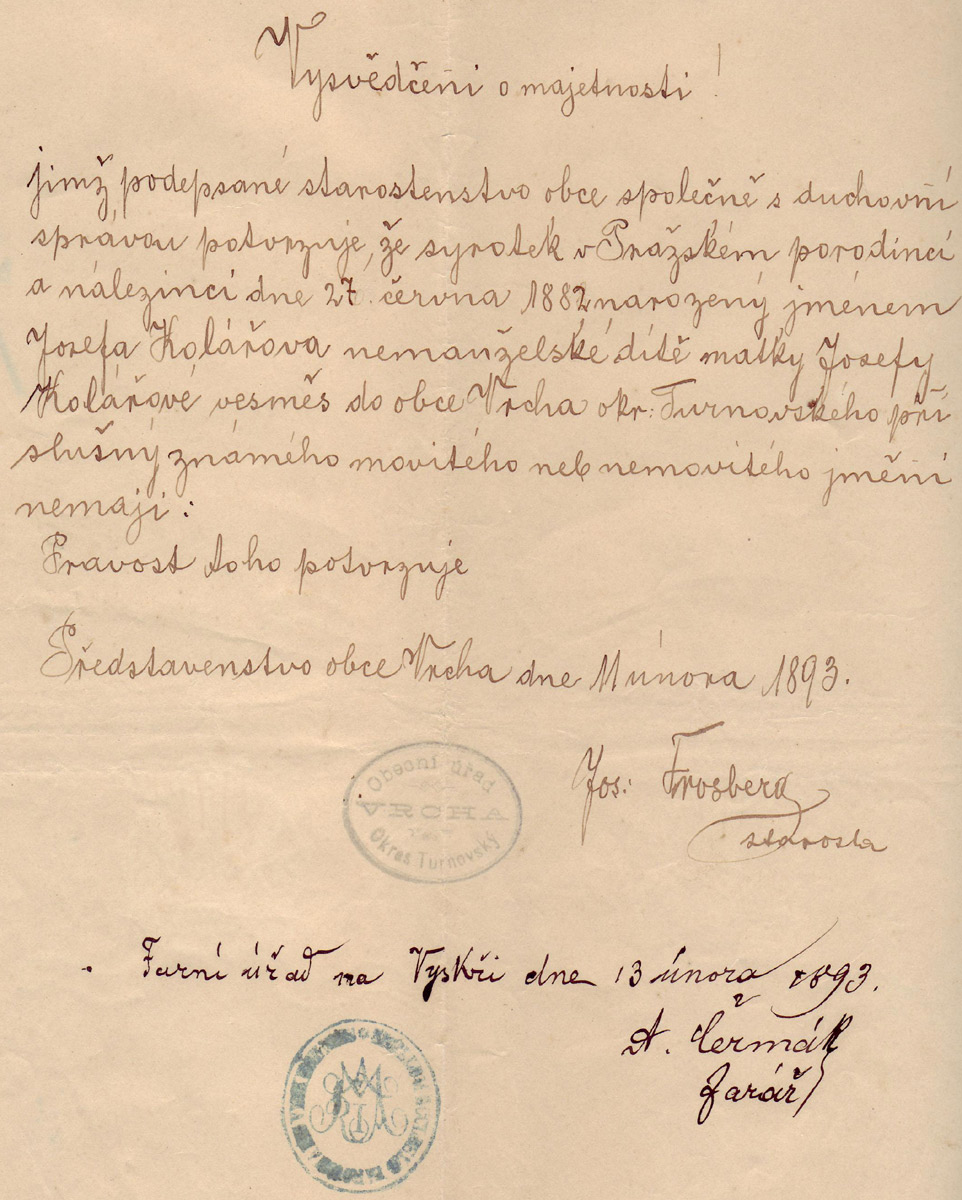 Vysvědčeňi o majetnosti !
jimž podepsané starostenstvo obce společně s duchovňí
správou potvrzuje, že syrotek v Pražském porodincí
a nálezincí dne 27. června 1882 narozený jménem
Josefa Kolářova nemanželské dítě matky Josefy
Kolářové vesměs do obce Vrcha okr: Turnovského pří
slušný známého movitého neb nemovitého jměňí
nemaji :
Pravost toho potvrzuje
Představenstvo obce Vrcha dne 11 února 1893.
Jos: Frosberg
starosta
Obecní úřad
VRCHA
Okres Turnovský
Farní úřad na Vyskři dne 13 února 1893.
A. Čermák
farář